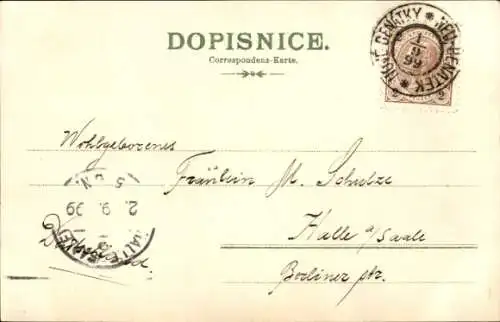 DOPISNICE.
Correspondenz-Karte.
NOVÉ BENÁTKY * NEU-BENATEK *
1
9
99
2 2
Wohlgeborenes
Fräulein M. Schulze
Halle a/Saale
Berliner str.
HALLE (SAALE)
2. 9. 99
5 6 N.